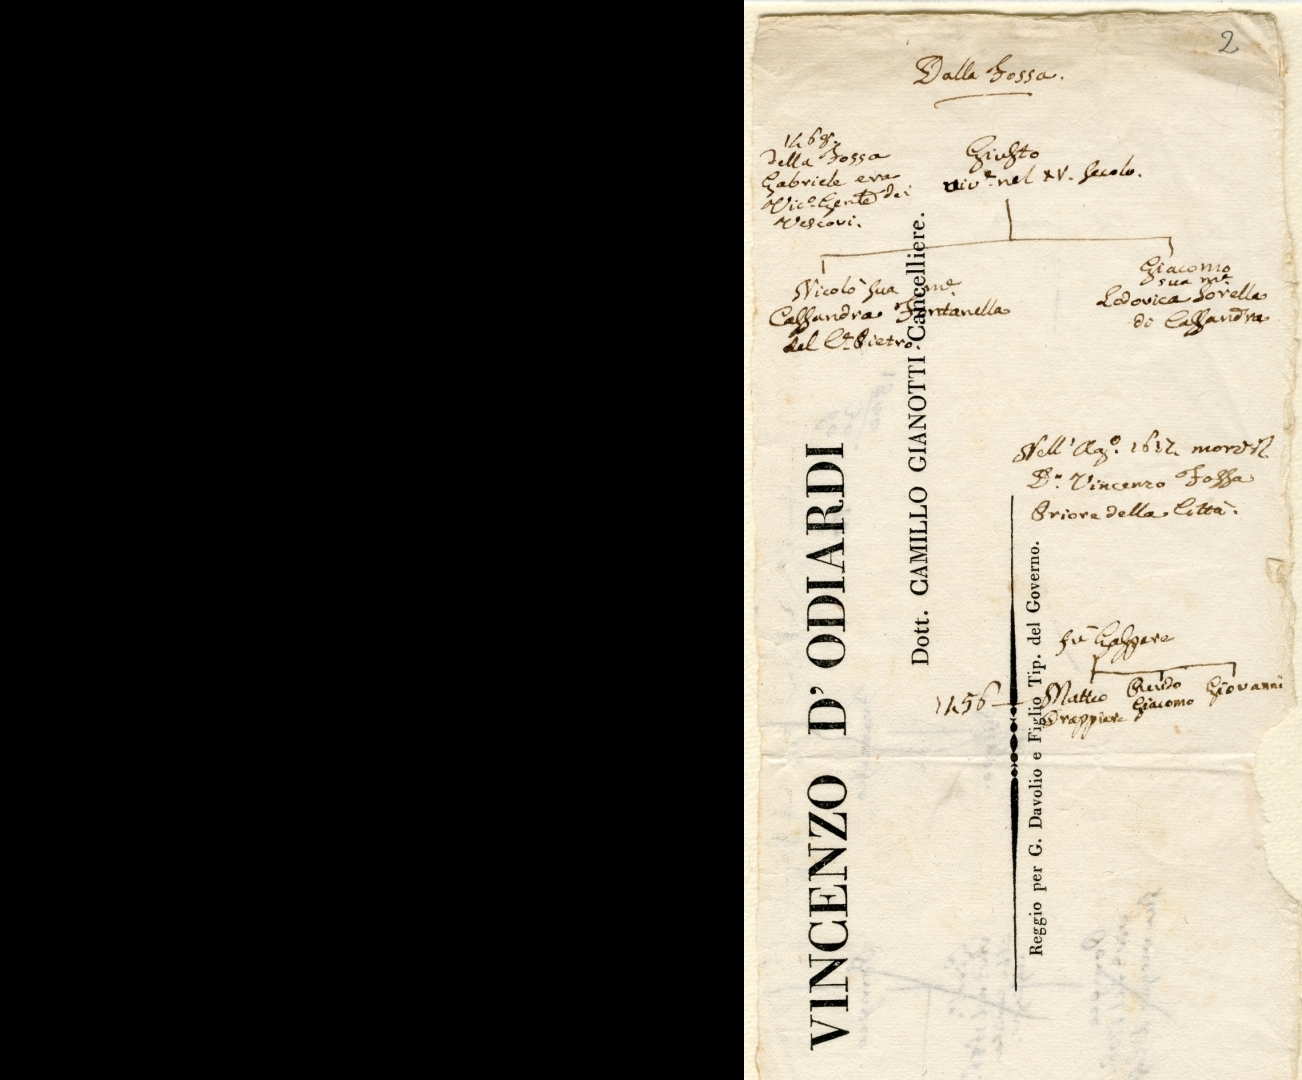 2
Dalla Fossa.
1468.
della Fossa
Gabriele era
Vic. Gente dei
Vescovi.
Giusto
viv.e nel XV. Secolo.
Nicolò sua me.
Cassandra Fontanella
del Ct. Pietro.
Giacomo
sua me.
Lodovica Sorella
di Cassandra
Nell' Ago. 1612. morì il
Dn. Vincenzo Fossa
Priore della Città.
fù Gaspare
1456 — Matteo Guido Giovanni
Drappiere Giacomo
VINCENZO D' ODIARDI
Dott. CAMILLO GIANOTTI Cancelliere.
Reggio per G. Davolio e Figlio Tip. del Governo.